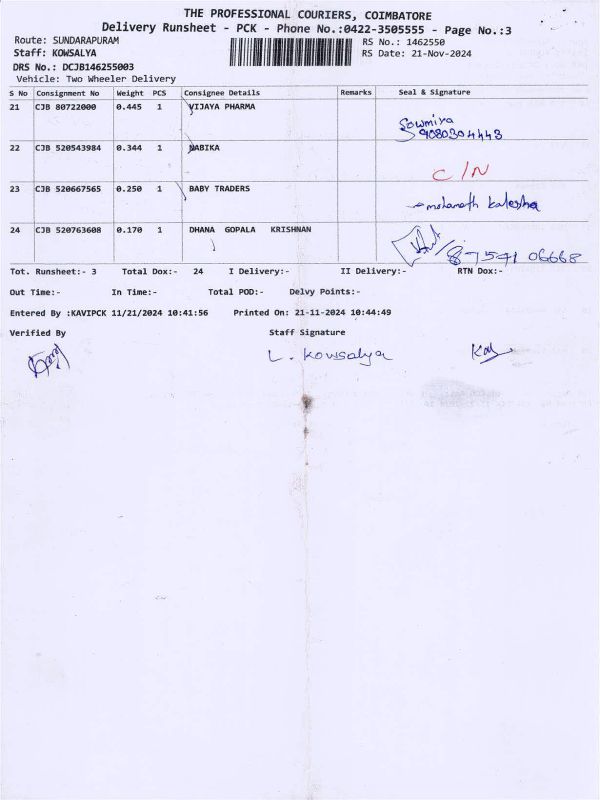 THE PROFESSIONAL COURIERS, COIMBATORE
Delivery Runsheet - PCK - Phone No.:0422-3505555 - Page No.:3
Route: SUNDARAPURAM RS No.: 1462550
Staff: KOWSALYA RS Date: 21-Nov-2024
DRS No.: DCJB146255003
Vehicle: Two Wheeler Delivery
S No Consignment No Weight PCS Consignee Details Remarks Seal & Signature
21 CJB 80722000 0.445 1 VIJAYA PHARMA
Sowmiya
9080304443
22 CJB 520543984 0.344 1 NABIKA
C/N
23 CJB 520667565 0.250 1 BABY TRADERS
24 CJB 520763608 0.170 1 DHANA GOPALA KRISHNAN
87541 06668
Tot. Runsheet:- 3 Total Dox:- 24 I Delivery:- II Delivery:- RTN Dox:-
Out Time:- In Time:- Total POD:- Delvy Points:-
Entered By :KAVIPCK 11/21/2024 10:41:56 Printed On: 21-11-2024 10:44:49
Verified By Staff Signature
L. Kowsalya